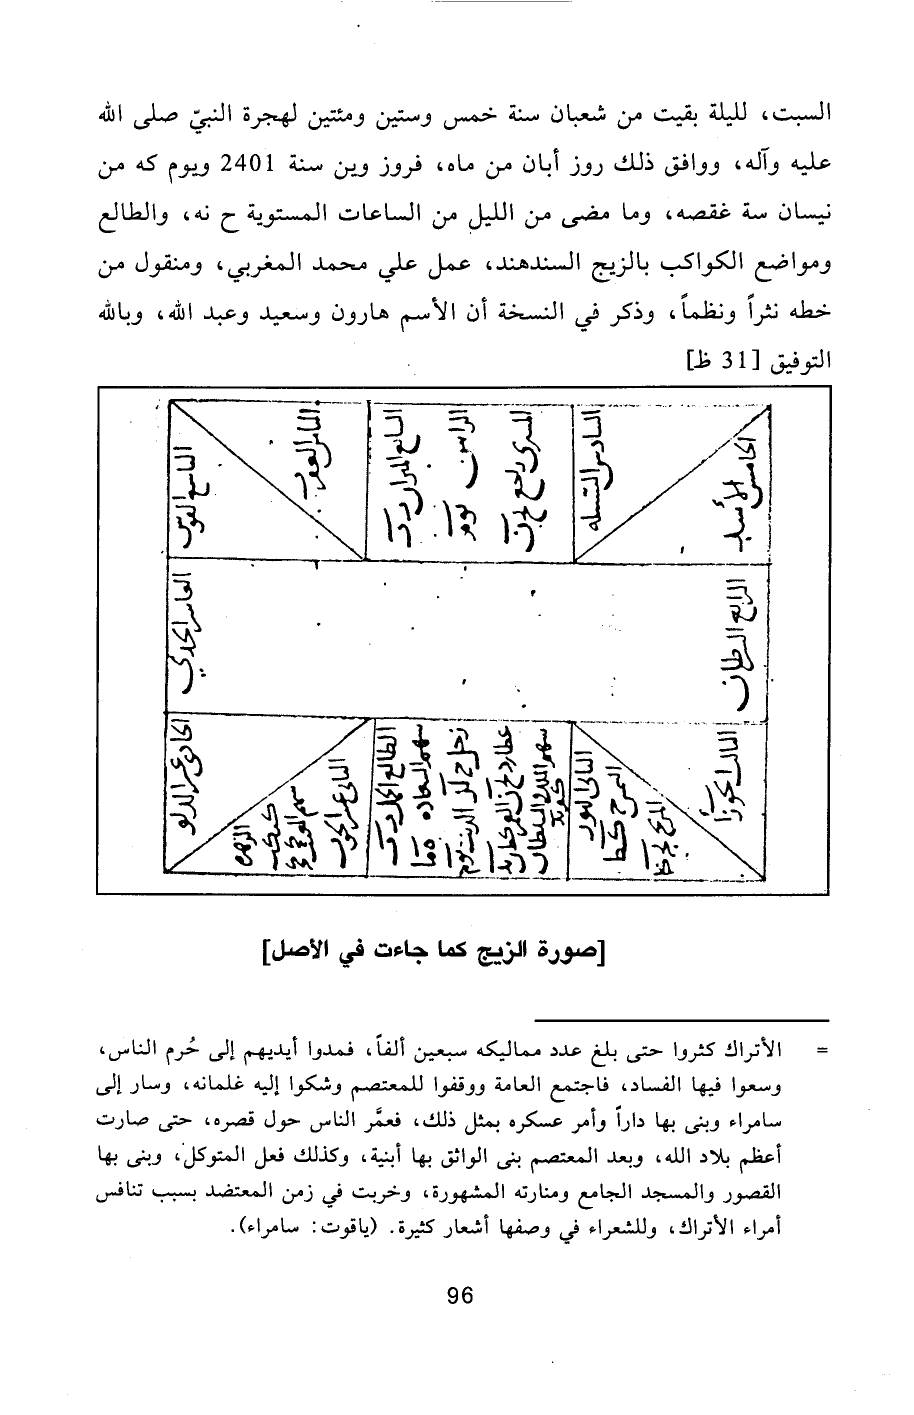 السبت، لليلة بقيت من شعبان سنة خمس وستين ومئتين لهجرة النبيّ صلى الله
عليه وآله، ووافق ذلك روز أبان من ماه، فروز وين سنة 2401 ويوم كه من
نيسان سة غقصه، وما مضى من الليل من الساعات المستوية ح نه، والطالع
ومواضع الكواكب بالزيج السندهند، عمل علي محمد المغربي، ومنقول من
خطه نثراً ونظماً، وذكر في النسخة أن الأسم هارون وسعيد وعبد الله، وبالله
التوفيق [31 ظ]
الخامس الأسد
السادس السنبله
الراس
السابع الميزان
الثامن العقرب
التاسع القوس
الرابع السرطان
العاشر الجدي
الثالث الجوزا
الثاني الثور
سهم
عطارد
زحل
سهم السعاده
الطالع الحمل
الثاني عشر الحوت
الزهره
الحادي عشر الدلو
[صورة الزيج كما جاءت في الأصل]
= الأتراك كثروا حتى بلغ عدد مماليكه سبعين ألفاً، فمدوا أيديهم إلى حُرم الناس،
وسعوا فيها الفساد، فاجتمع العامة ووقفوا للمعتصم وشكوا إليه غلمانه، وسار إلى
سامراء وبنى بها داراً وأمر عسكره بمثل ذلك، فعمَّر الناس حول قصره، حتى صارت
أعظم بلاد الله، وبعد المعتصم بنى الواثق بها أبنية، وكذلك فعل المتوكل، وبنى بها
القصور والمسجد الجامع ومنارته المشهورة، وخربت في زمن المعتضد بسبب تنافس
أمراء الأتراك، وللشعراء في وصفها أشعار كثيرة. (ياقوت: سامراء).
96